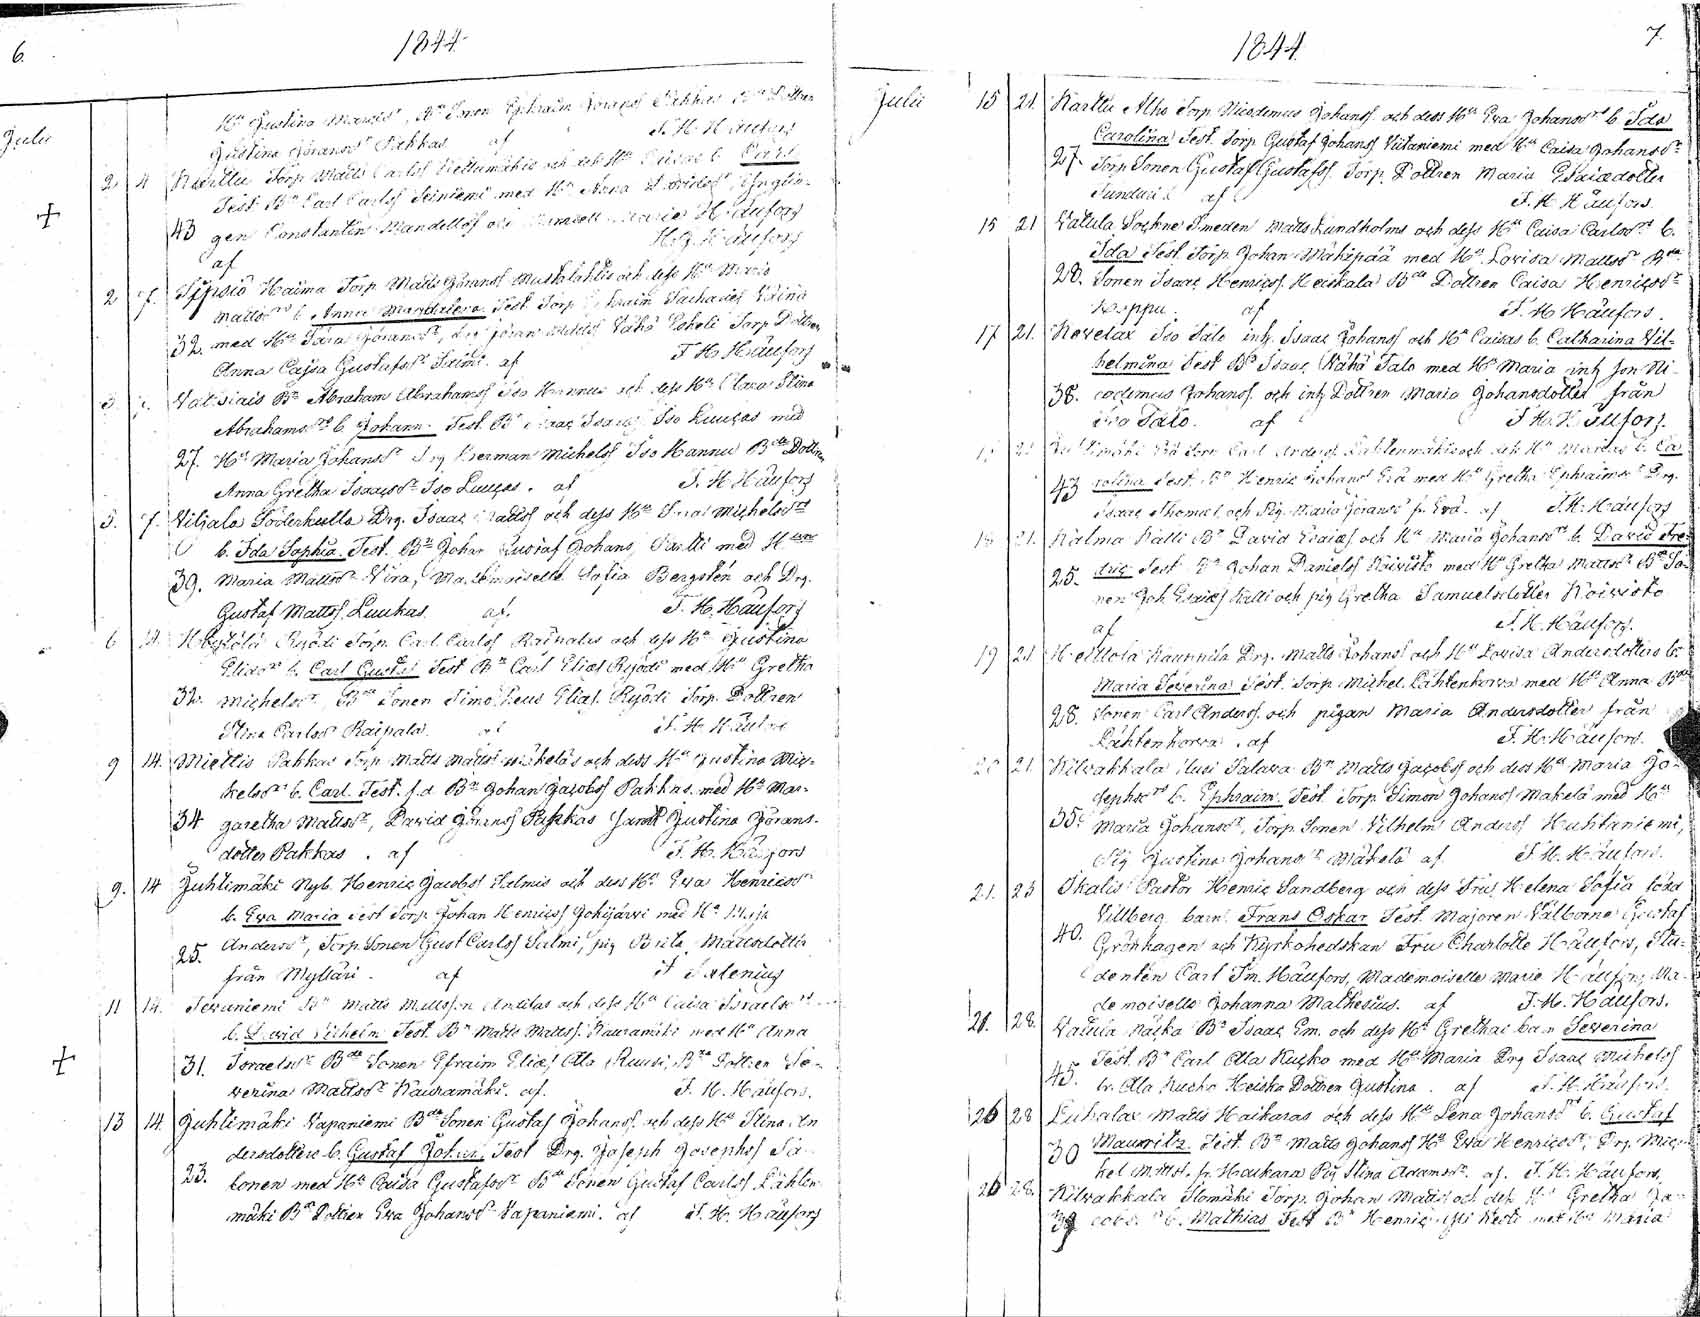 6.
1844
Julii
Hu Gustina Mattsdr, Bde Sonen Ephraim Göransf Pakkas Bde Dottren
Gustina Göransdr Pakkas af F. H. Häufors
2 4 Karttu Torp Matts Carlsf Kettumäkis och dess Hu Caisas b. Carl
Test. Bn Carl Carlsf Seiniemi med Hu Anna Davidsdr, Ynglin-
43 gen Constantin Mandellöf och Maria Häufors
af H. G. Häufors
2 7. Sipsiö Haima Torp Matts Göransf Mustalahtis och dess Hu Maria
Mattsdrs b. Anna Mandaleva Test. Torp Ephraim Zacharief Väinä
32. med Hu Sara Göransdr, Göran Mattsf Vähä Torp Dottren
Anna Cajsa Gustafsdr Saimi. af F. H. Häufors
3. 7. Vatsiais Bn Abraham Abrahamsf Iso Hannus och dess Hu Clara Stina
Abrahamsdrs b. Johann. Test. Bn Isaac Isaacsf Iso Luucas med
27. Hu Maria Johansdr Drg Herman Michelsf Iso Hannu Bde Dottren
Anna Gretha Isaacsdr Iso Luucas. af F. H. Häufors
5. 7. Viljala Söderkulla Drg. Isaac Mattsf och dess Hu Michelsdrs
b. Ida Sophia. Test. Bn Johan Gustaf Johans, Partti med Hu
39. Maria Mattsdr Vira, Mademoiselle Sofia Bergstén och Drg.
Gustaf Mattsf. Luukas. af. F. H. Häufors
6 14. Ryödi Torp. Carl Carlsf Raipalas och dess Hu Gustina
Eliasdrs b. Carl Gustaf Test Bn Carl Eliæsf Ryödi med Hu Gretha
32. Michelsdr, Bde Sonen Timotheus Eliæs. Ryödi Torp. Dottren
Stina Carlsdr Raipala. af F. H. Häufors
9 14. Miettis Pakkas Torp Matts Mattsf Mäkeläs och dess Hu Gustina Mic-
kelsdrs b. Carl. Test. f.d. Bn Johan Jacobsf Pakkas. med Hu Mar-
34 garetha Mattsdr, David Göransf Pakkas samt Gustina Görans-
dotter Pakkas. af F. H. Häufors
9. 14 Juhtimäki Nyb. Henric Jacobsf Halmis och dess Hu Eva Henricsdrs
b. Eva Maria Test Torp Johan Henricsf Gohijärvi med Hu Maja
25. Andersdr, Torp. Sonen Gust Carlsf Salmi, pig Brita Mattsdotter
från Mylläri. af F Salenius
11 14. Sevaniemi Bn Matts Mattsson Anttilas och dess Hu Caisa Israelsdrs
b. David Vilhelm Test. Bn Matts Mattsf. Kauramäki med Hu Anna
31. Israelsdr Bde Sonen Efraim Eliæsf Ala Ruusi, Bde Dottren Se-
verina Mattsdr Kauramäki. af. F. H. Häufors.
13 14 Juhtimäki Vapaniemi Bde Sonen Gustaf Johansf. och dess Hu Stina An
dersdotters b. Gustaf Johan. Test Drg. Joseph Josephsf Sa-
23. lonen med Hu Caisa Gustafsdr Bde Sonen Gustaf Carlsf Lähten
mäki Bde Dottren Eva Johansdr Vapaniemi. af F. H. Häufors
7.
1844
Julii 15 21. Karttu Alho Torp Nicodemus Johansf och dess Hu Eva Johansdrs b. Ida
Carolina Test. Torp Gustaf Johansf Viitaniemi med Hu Caisa Johansdr
27. Torp Sonen Gustaf Gustafsf. Torp. Dottren Maria Esaiædotter
Sundvik af F. H. Häufors.
15 21 Vatula Sockne Smeden Matts Lundholms och dess Hu Caisa Carlsdrs b.
Ida Test. Torp Johan Vähäpää med Hu Lovisa Mattsdr Bde
28. Sonen Isaac Henricsf. Heiskala Bde Dottren Caisa Henricsdr
Koppu. af F. H. Häufors.
17 21. Kovelax Iso Salo inh. Isaac Johansf och Hu Caisas b. Catharina Vil-
helmina Test Bn Isaac Vähä Salo med Hu Maria inh son Ni-
38. codemus Johansf. och inh Dottren Maria Johansdotter från
Iso Salo. af F. H. Häufors.
21 Torp. Carl Andersf Lähtenmäkis och dess Hu Marias b. Ca
43 rolina Test. Bn Henric Johansf Erä med Hu Gretha Ephraimsdr Drg.
Isaac Thomæf. och Pig. Maria Göransdr fr. Erä. af F. H. Häufors
18 21. Kalma Kalli Bn David Esaiæf och Hu Maria Johansdrs b. David Fre-
25. dric Test Bn Johan Danielsf Koivisto med Hu Gretha Mattsdr Bde So-
nen Joh. Esaiæf Kalli och pig Gretha Samuelsdotter Koivisto
af F. H. Häufors.
19 21 Heittola Kaunnila Drg. Matts Johansf och Hu Lovisa Andersdotters b.
Maria Severina Test. Torp Michel Lähtenkorva med Hu Anna Bde
28. Sonen Carl Andersf. och pigan Maria Andersdotter från
Lähtenkorva. af F. H. Häufors.
20 21. Kilvakkala Uusi Palava Bn Matts Jacobsf och dess Hu Maria Jo-
sephsdrs b. Ephraim. Test. Torp Simon Johansf Makelä med Hu
35. Maria Johansdr, Torp Sonen Vilhelm Andersf Huhtaniemi,
Pig Gustina Johansdr Mäkelä af F. H. Häufors.
21. 23 Ikalis Pastor Henric Sandberg och dess Fru, Helena Sofia född
Villberg barn. Frans Oskar Test. Majoren Välborne Gustaf
40. Grönhagen och Kyrkoherdskan Fru Charlotte Häufors, Stu-
denten Carl Em. Häufors, Mademoiselle Marie Häufors, Ma-
demoiselle Johanna Mathesius. af F. H. Häufors.
21. 28. Vatula Raska Bn Isaac Em. och dess Hu Grethas barn Severina
Test. Bn Carl Ala Kusko med Hu Maria Drg Isaac Michelsf
45. fr. Ala Kusko Heiska Dottren Gustina. af F. H. Häufors.
26 28 Luhalax Matts Haikaras och dess Hu Lena Johansdrs b. Gustaf
30 Mauritz. Test. Bn Matts Johansf Hu Eva Henricsdr, Drg. Mic-
hel Mattsf. fr. Haikara Pig Stina Adamsdr. af. F. H. Häufors,
26 28. Kilvakkala Ilomäki Torp. Johan Mattsf och dess Hu Gretha Ja-
39 cobsdrs b. Mathias Test Bn Henric Kesti med Hu Maria